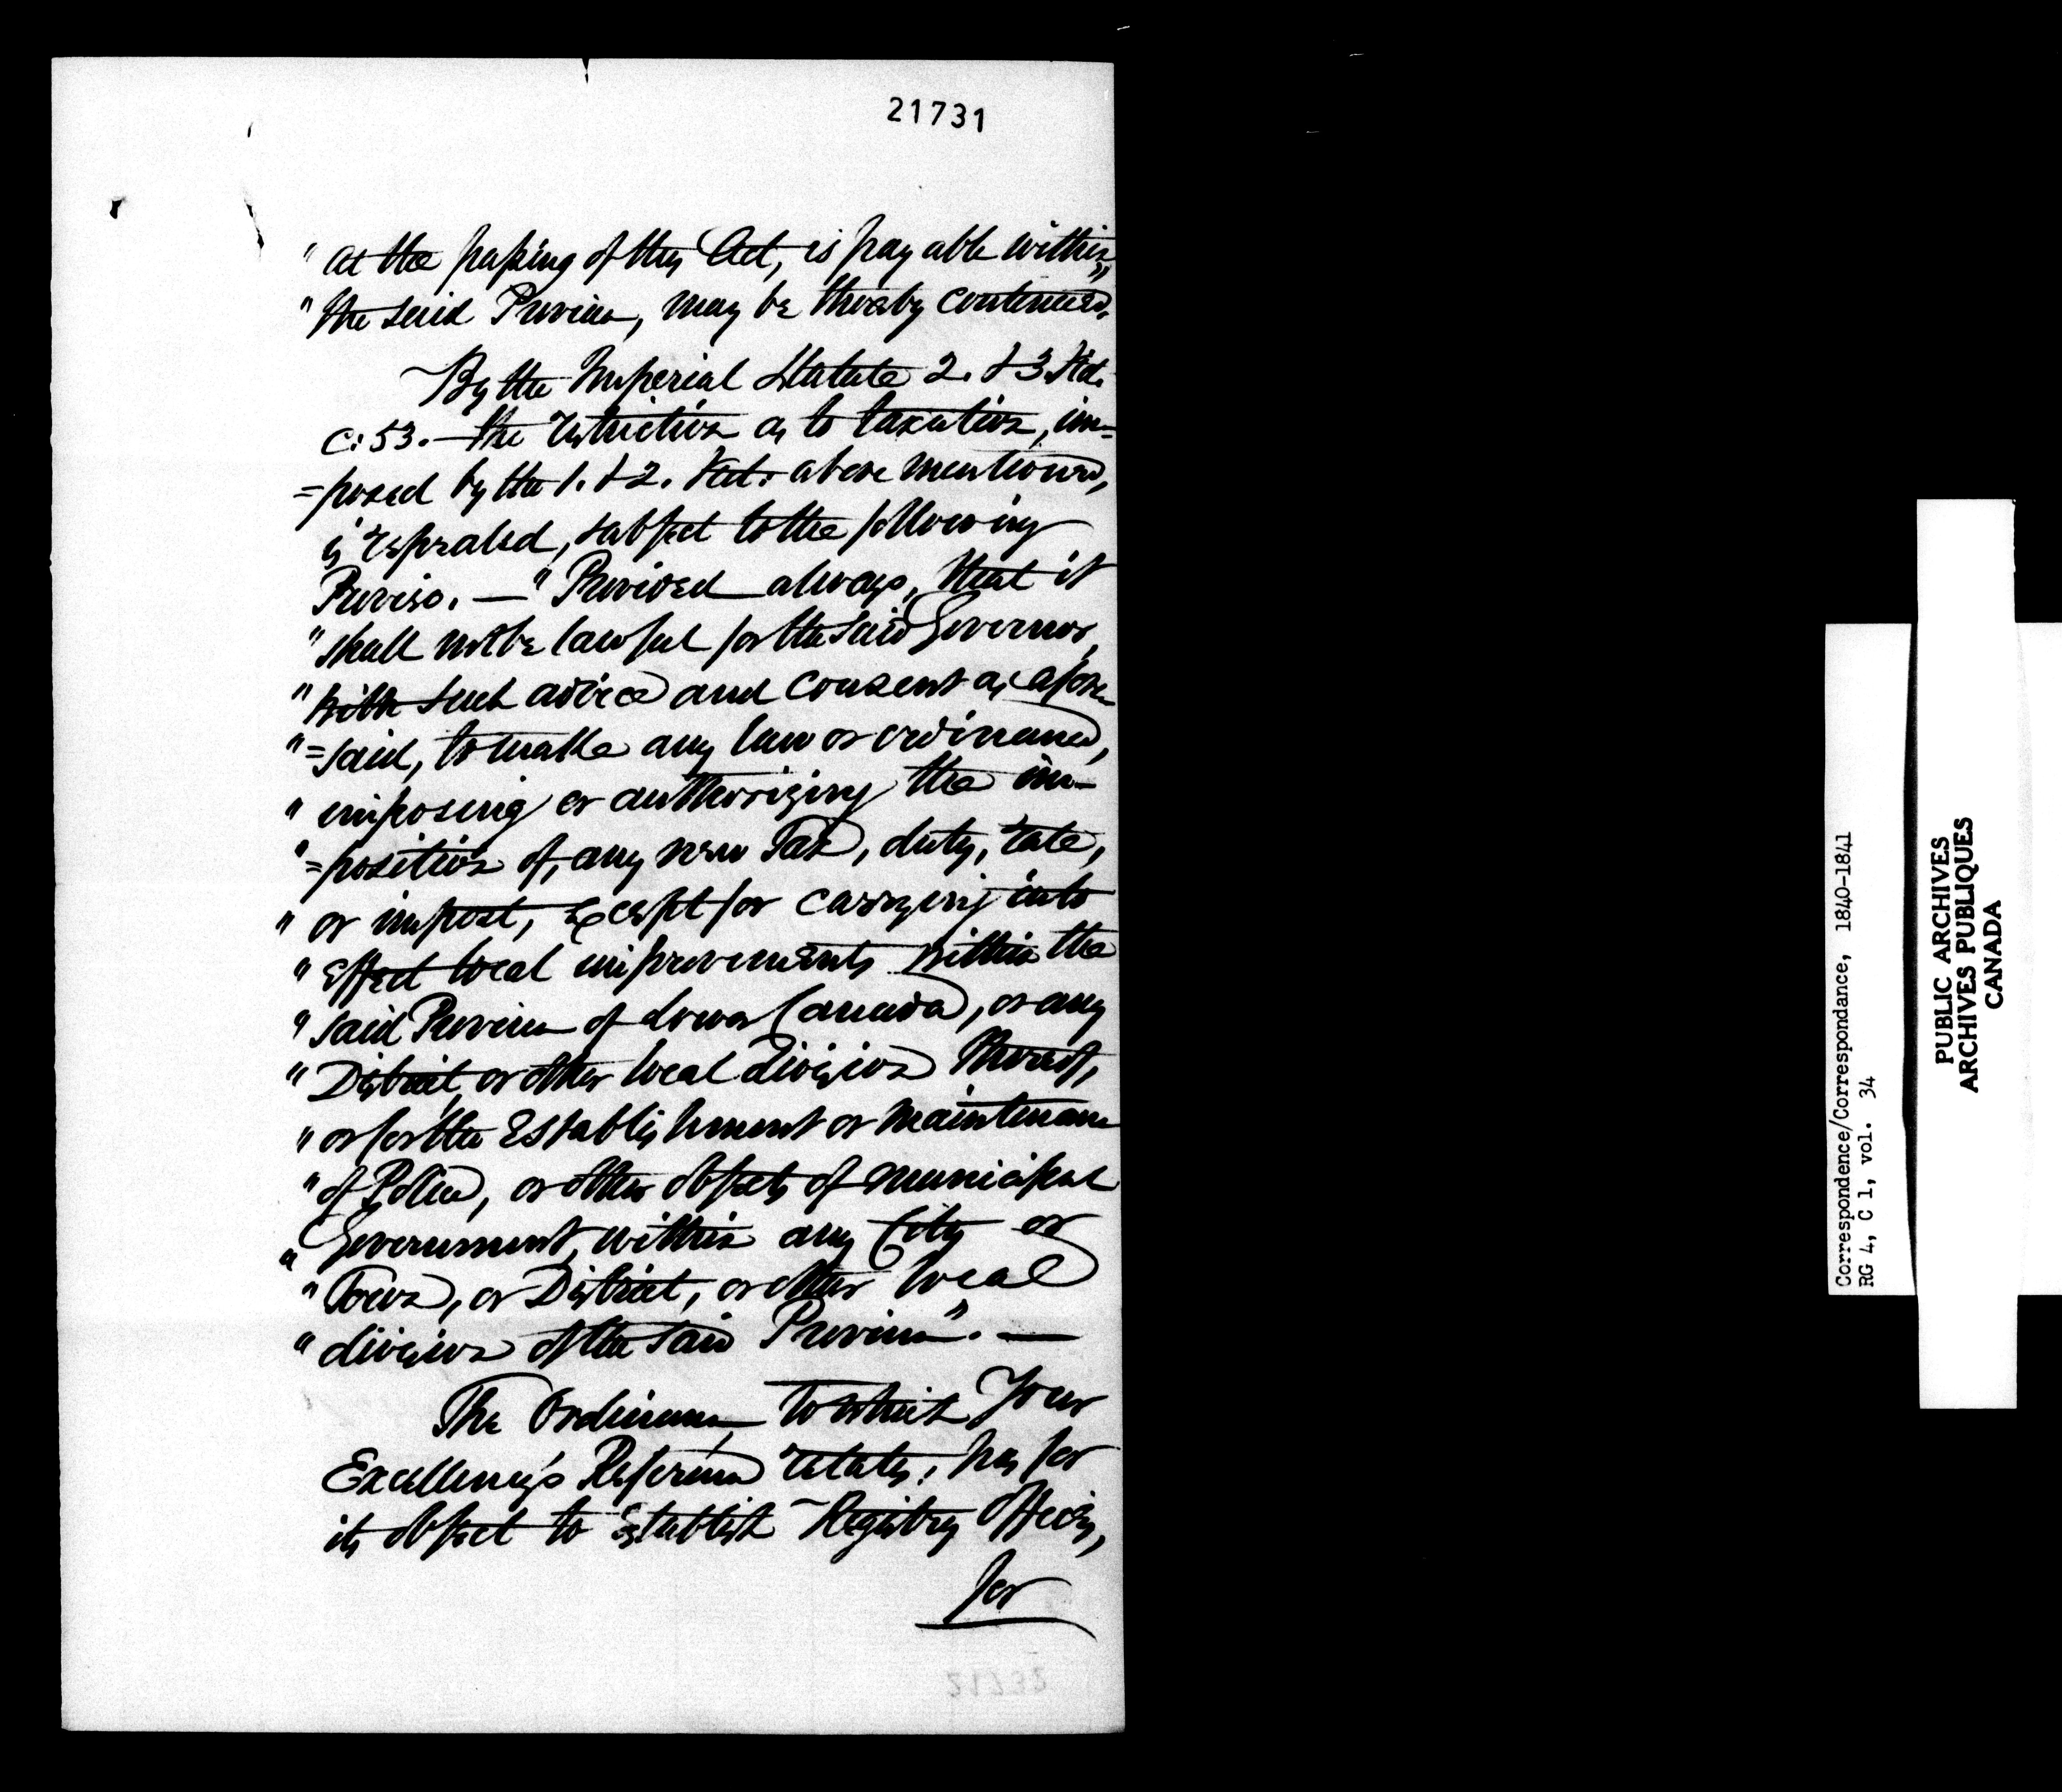 21731
" at the passing of this Act, is payable within
" the said Province, may be thereby continued."
By the Imperial Statute 2. & 3. Vict.
c: 53. — the restriction as to taxation, im=
=posed by the 1. & 2. Vict: above mentioned,
is repealed, subject to the following
Proviso. — " Provided always, that it
" shall not be lawful for the said Governor,
" with such advice and consent as afore
"=said, to make any law or ordinance,
" imposing or authorizing the im-
"=position of, any new Tax, duty, rate,
" or impost, except for carrying into
" effect local improvements within the
" said Province of Lower Canada, or any
" District, or other local division thereof,
" or for the establishment or maintenance
" of Police, or other objects of municipal
" Government, within any City or
" Town, or District, or other local
" division of the said Province". —
The Ordinance, to which Your
Excellency's Reference relates, has for
its object to establish Registry Offices,
for
21732
Correspondence/Correspondance, 1840-1841
RG 4, C 1, vol. 34
PUBLIC ARCHIVES
ARCHIVES PUBLIQUES
CANADA